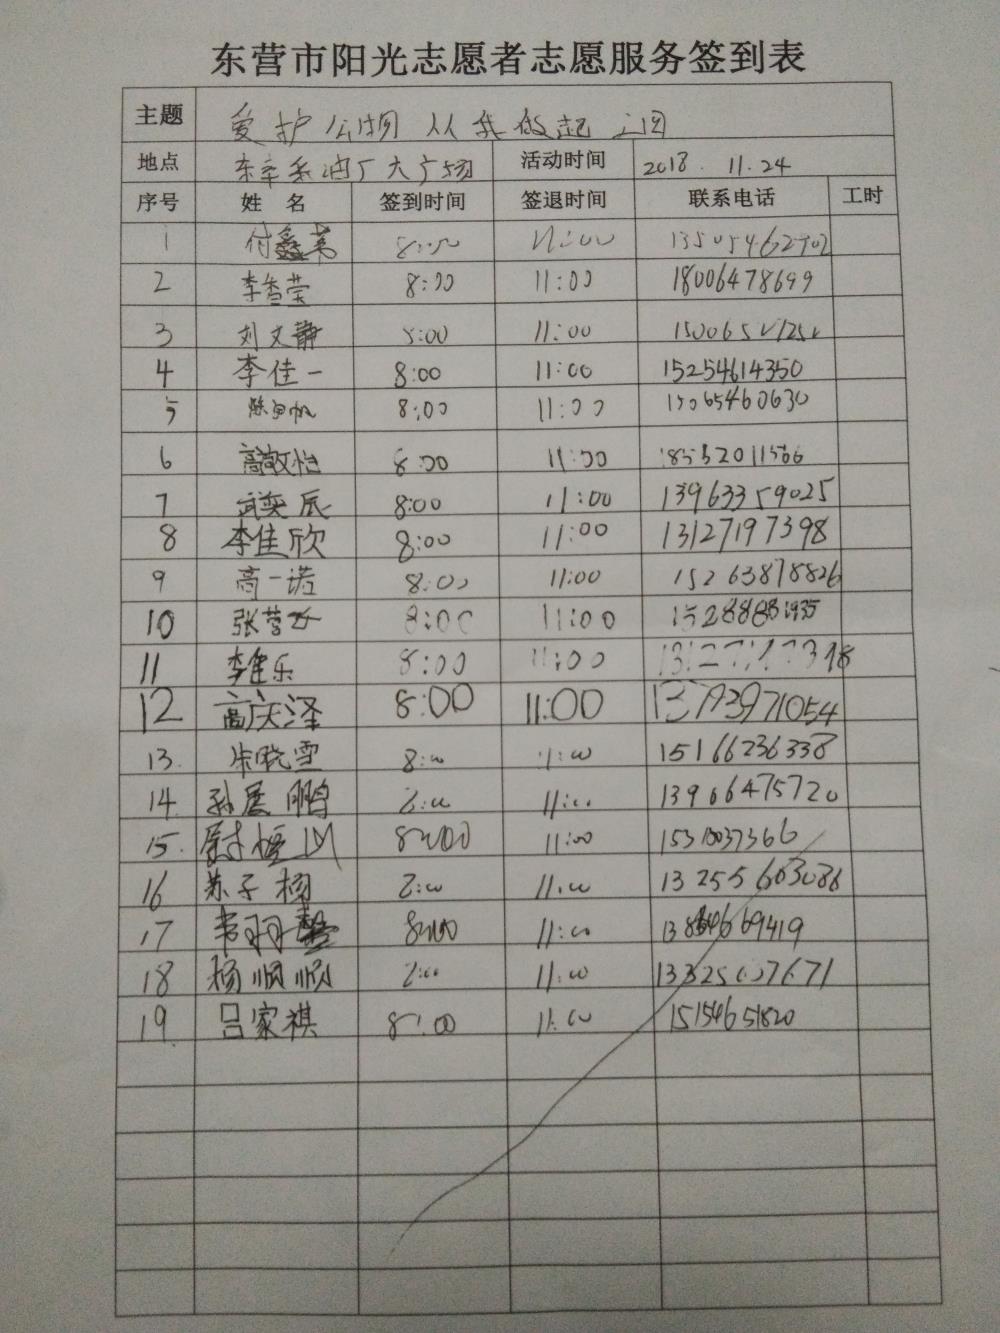 东营市阳光志愿者志愿服务签到表
主题 爱护公物 从我做起
地点 广大广场 活动时间 2018.11.24
序号 姓名 签到时间 签退时间 联系电话 工时
1 付鑫 8:00 11:00
2 李香莹 8:00 11:00 18006478699
3 刘文静 8:00 11:00
4 李佳一 8:00 11:00 15254614350
5 8:00 11:00 15065460630
6 高敬怡 8:00 11:00
7 武奕辰 8:00 11:00 13963359025
8 李佳欣 8:00 11:00 13127197398
9 高一诺 8:00 11:00 15263878826
10 张营 8:00 11:00
11 李佳乐 8:00 11:00
12 高庆泽 8:00 11:00 13793971054
13. 朱晓雪 8:00 11:00 15166236338
14. 孙展鹏 8:00 11:00 13906475720
15. 尉恒 8:00 11:00
16 苏子杨 8:00 11:00 13255603086
17 8:00 11:00
18 杨顺顺 8:00 11:00
19. 吕家祺 8:00 11:00 15154651820